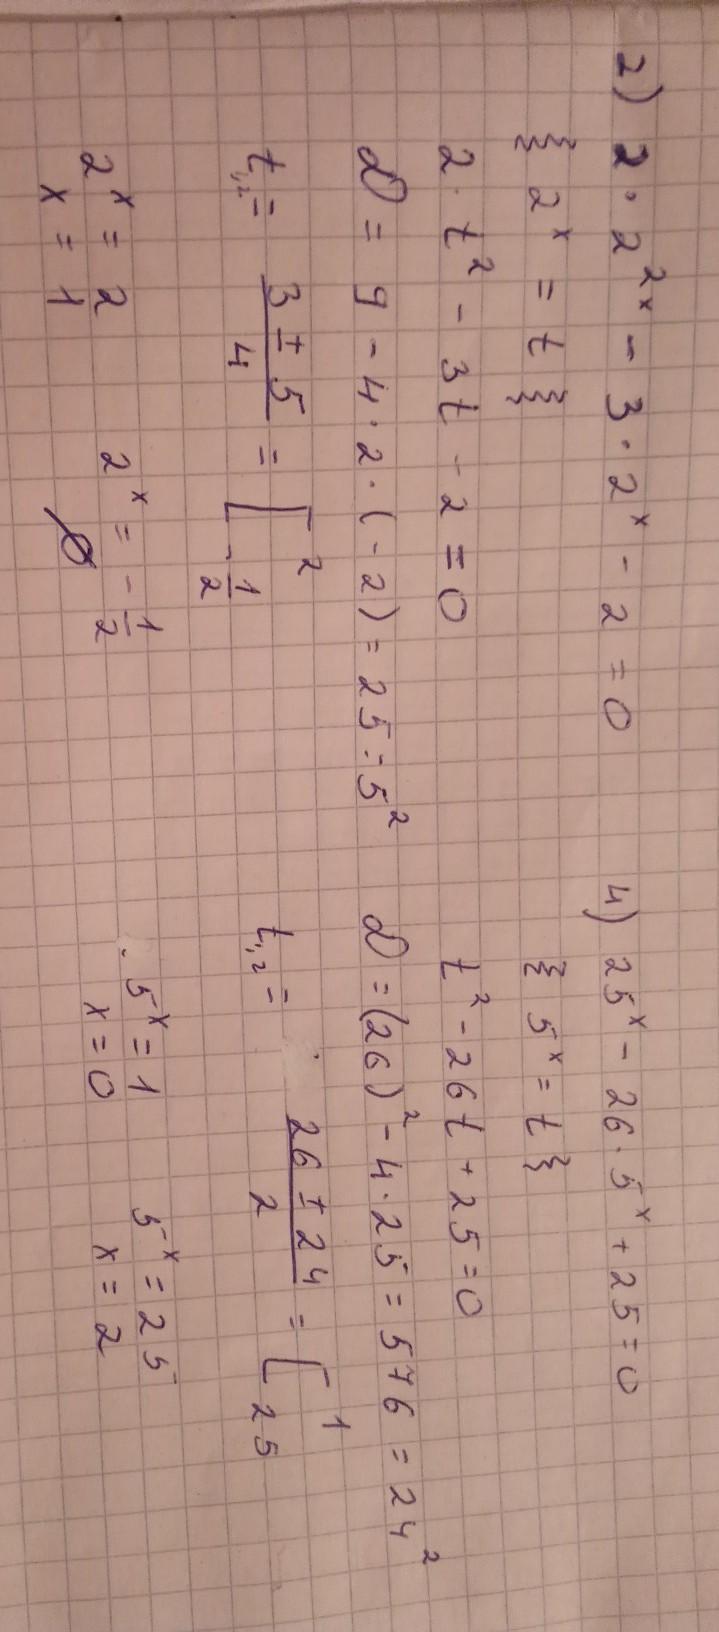 2) 2 · 2²ˣ - 3 · 2ˣ - 2 = 0
{ 2ˣ = t }
2 · t² - 3t - 2 = 0
D = 9 - 4 · 2 · (-2) = 25 = 5²
t₁,₂ = (3 ± 5)/4 = [ 2
-1/2
2ˣ = 2    2ˣ = -1/2
x = 1    ∅
4) 25ˣ - 26 · 5ˣ + 25 = 0
{ 5ˣ = t }
t² - 26t + 25 = 0
D = (26)² - 4 · 25 = 576 = 24²
t₁,₂ = (26 ± 24)/2 = [ 1
25
5ˣ = 1    5ˣ = 25
x = 0    x = 2